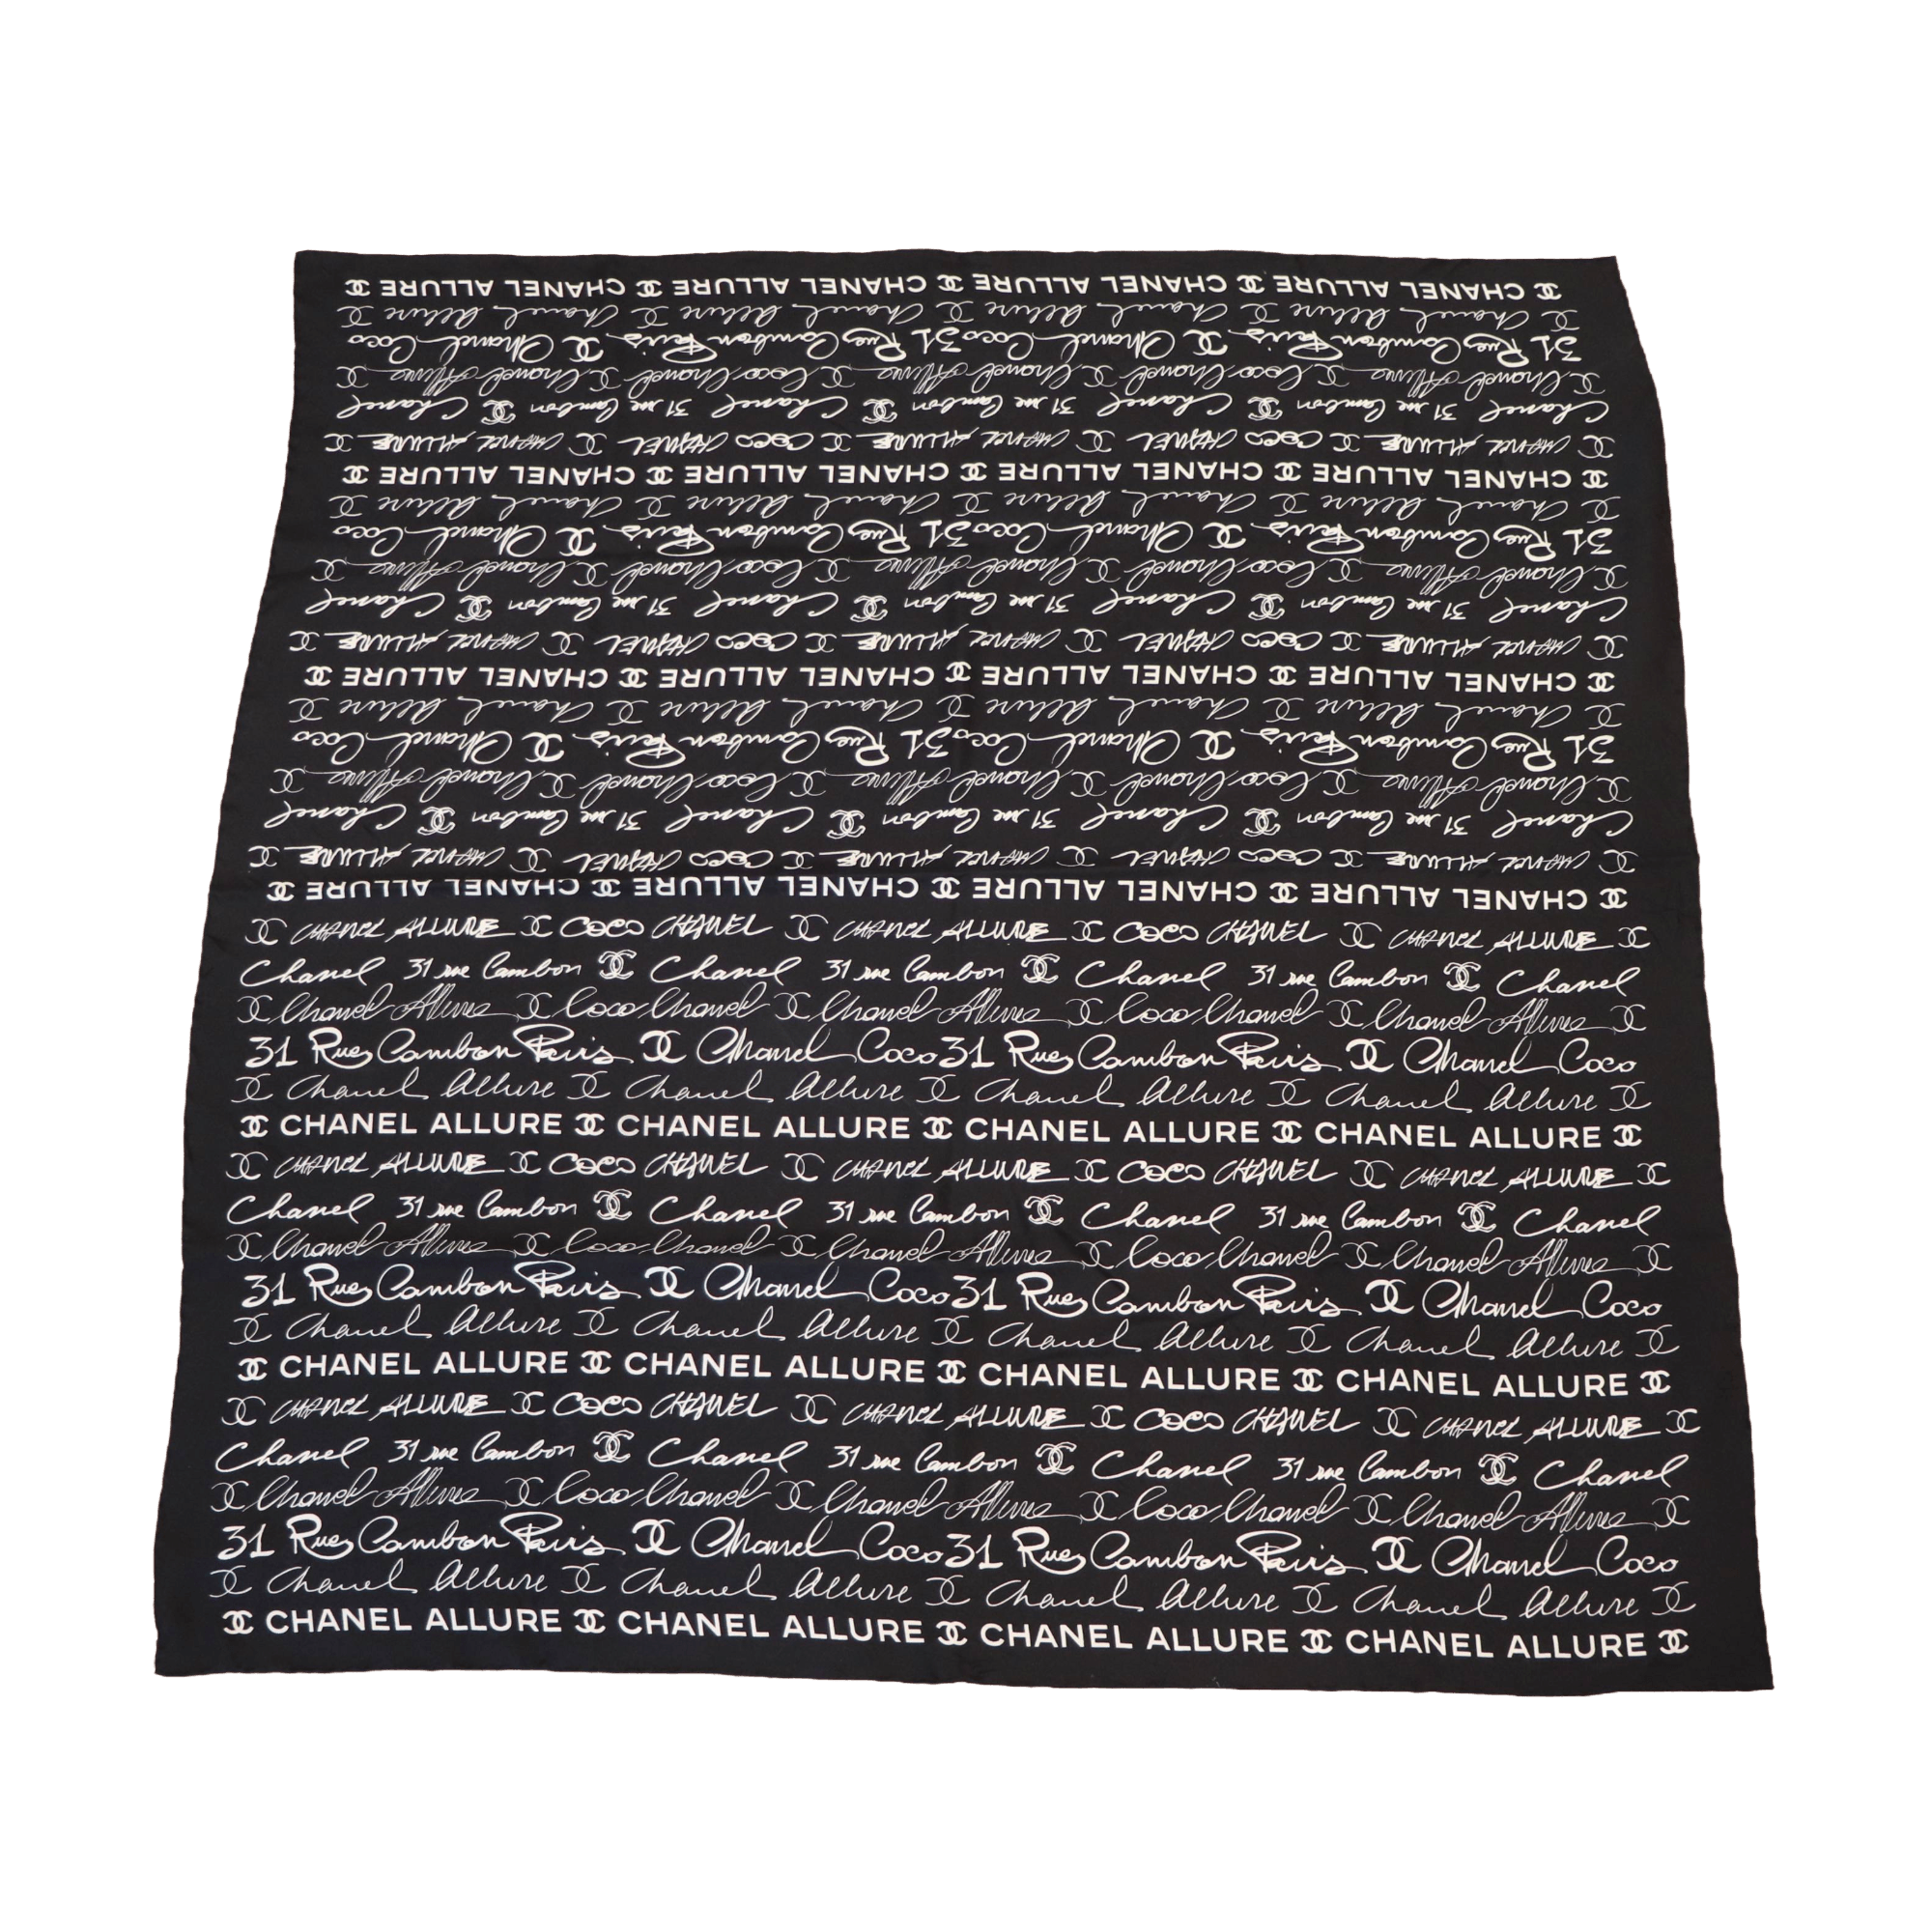 CHANEL ALLURE CHANEL ALLURE CHANEL ALLURE CHANEL ALLURE
Chanel Allure Chanel Allure Chanel Allure Chanel Allure
31 Rue Cambon Paris Chanel Coco 31 Rue Cambon Paris Chanel Coco
Chanel Allure Coco Chanel Chanel Allure Coco Chanel Chanel Allure
Chanel 31 rue Cambon Chanel 31 rue Cambon Chanel 31 rue Cambon Chanel
CHANEL ALLURE COCO CHANEL CHANEL ALLURE COCO CHANEL CHANEL ALLURE
CHANEL ALLURE CHANEL ALLURE CHANEL ALLURE CHANEL ALLURE
Chanel Allure Chanel Allure Chanel Allure Chanel Allure
31 Rue Cambon Paris Chanel Coco 31 Rue Cambon Paris Chanel Coco
Chanel Allure Coco Chanel Chanel Allure Coco Chanel Chanel Allure
Chanel 31 rue Cambon Chanel 31 rue Cambon Chanel 31 rue Cambon Chanel
CHANEL ALLURE COCO CHANEL CHANEL ALLURE COCO CHANEL CHANEL ALLURE
CHANEL ALLURE CHANEL ALLURE CHANEL ALLURE CHANEL ALLURE
Chanel Allure Chanel Allure Chanel Allure Chanel Allure
31 Rue Cambon Paris Chanel Coco 31 Rue Cambon Paris Chanel Coco
Chanel Allure Coco Chanel Chanel Allure Coco Chanel Chanel Allure
Chanel 31 rue Cambon Chanel 31 rue Cambon Chanel 31 rue Cambon Chanel
CHANEL ALLURE COCO CHANEL CHANEL ALLURE COCO CHANEL CHANEL ALLURE
CHANEL ALLURE CHANEL ALLURE CHANEL ALLURE CHANEL ALLURE
CHANEL ALLURE COCO CHANEL CHANEL ALLURE COCO CHANEL CHANEL ALLURE
Chanel 31 rue Cambon Chanel 31 rue Cambon Chanel 31 rue Cambon Chanel
Chanel Allure Coco Chanel Chanel Allure Coco Chanel Chanel Allure
31 Rue Cambon Paris Chanel Coco 31 Rue Cambon Paris Chanel Coco
Chanel Allure Chanel Allure Chanel Allure Chanel Allure
CHANEL ALLURE CHANEL ALLURE CHANEL ALLURE CHANEL ALLURE
CHANEL ALLURE COCO CHANEL CHANEL ALLURE COCO CHANEL CHANEL ALLURE
Chanel 31 rue Cambon Chanel 31 rue Cambon Chanel 31 rue Cambon Chanel
Chanel Allure Coco Chanel Chanel Allure Coco Chanel Chanel Allure
31 Rue Cambon Paris Chanel Coco 31 Rue Cambon Paris Chanel Coco
Chanel Allure Chanel Allure Chanel Allure Chanel Allure
CHANEL ALLURE CHANEL ALLURE CHANEL ALLURE CHANEL ALLURE
CHANEL ALLURE COCO CHANEL CHANEL ALLURE COCO CHANEL CHANEL ALLURE
Chanel 31 rue Cambon Chanel 31 rue Cambon Chanel 31 rue Cambon Chanel
Chanel Allure Coco Chanel Chanel Allure Coco Chanel Chanel Allure
31 Rue Cambon Paris Chanel Coco 31 Rue Cambon Paris Chanel Coco
Chanel Allure Chanel Allure Chanel Allure Chanel Allure
CHANEL ALLURE CHANEL ALLURE CHANEL ALLURE CHANEL ALLURE